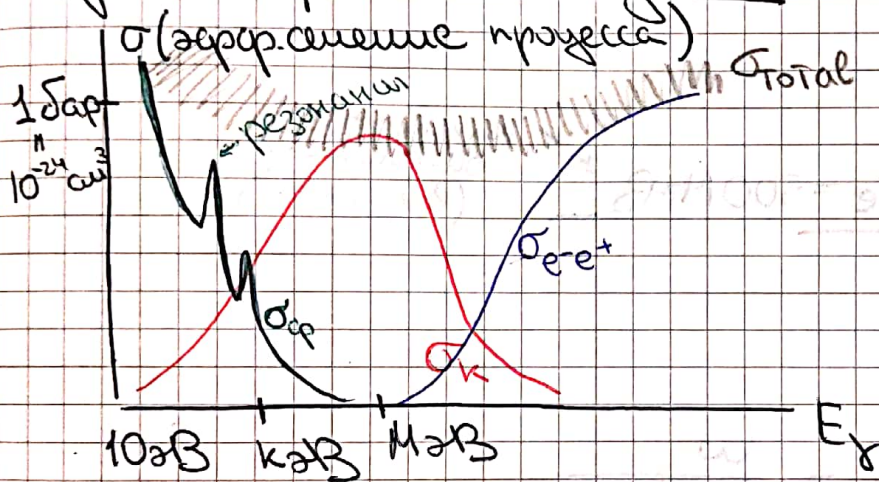 σ(эфф.сечение процесса)
σTotal
1бар
"
10⁻²⁴см³
резонанил
σф
σe⁻e⁺
σк
10эВ кэВ МэВ Eγ